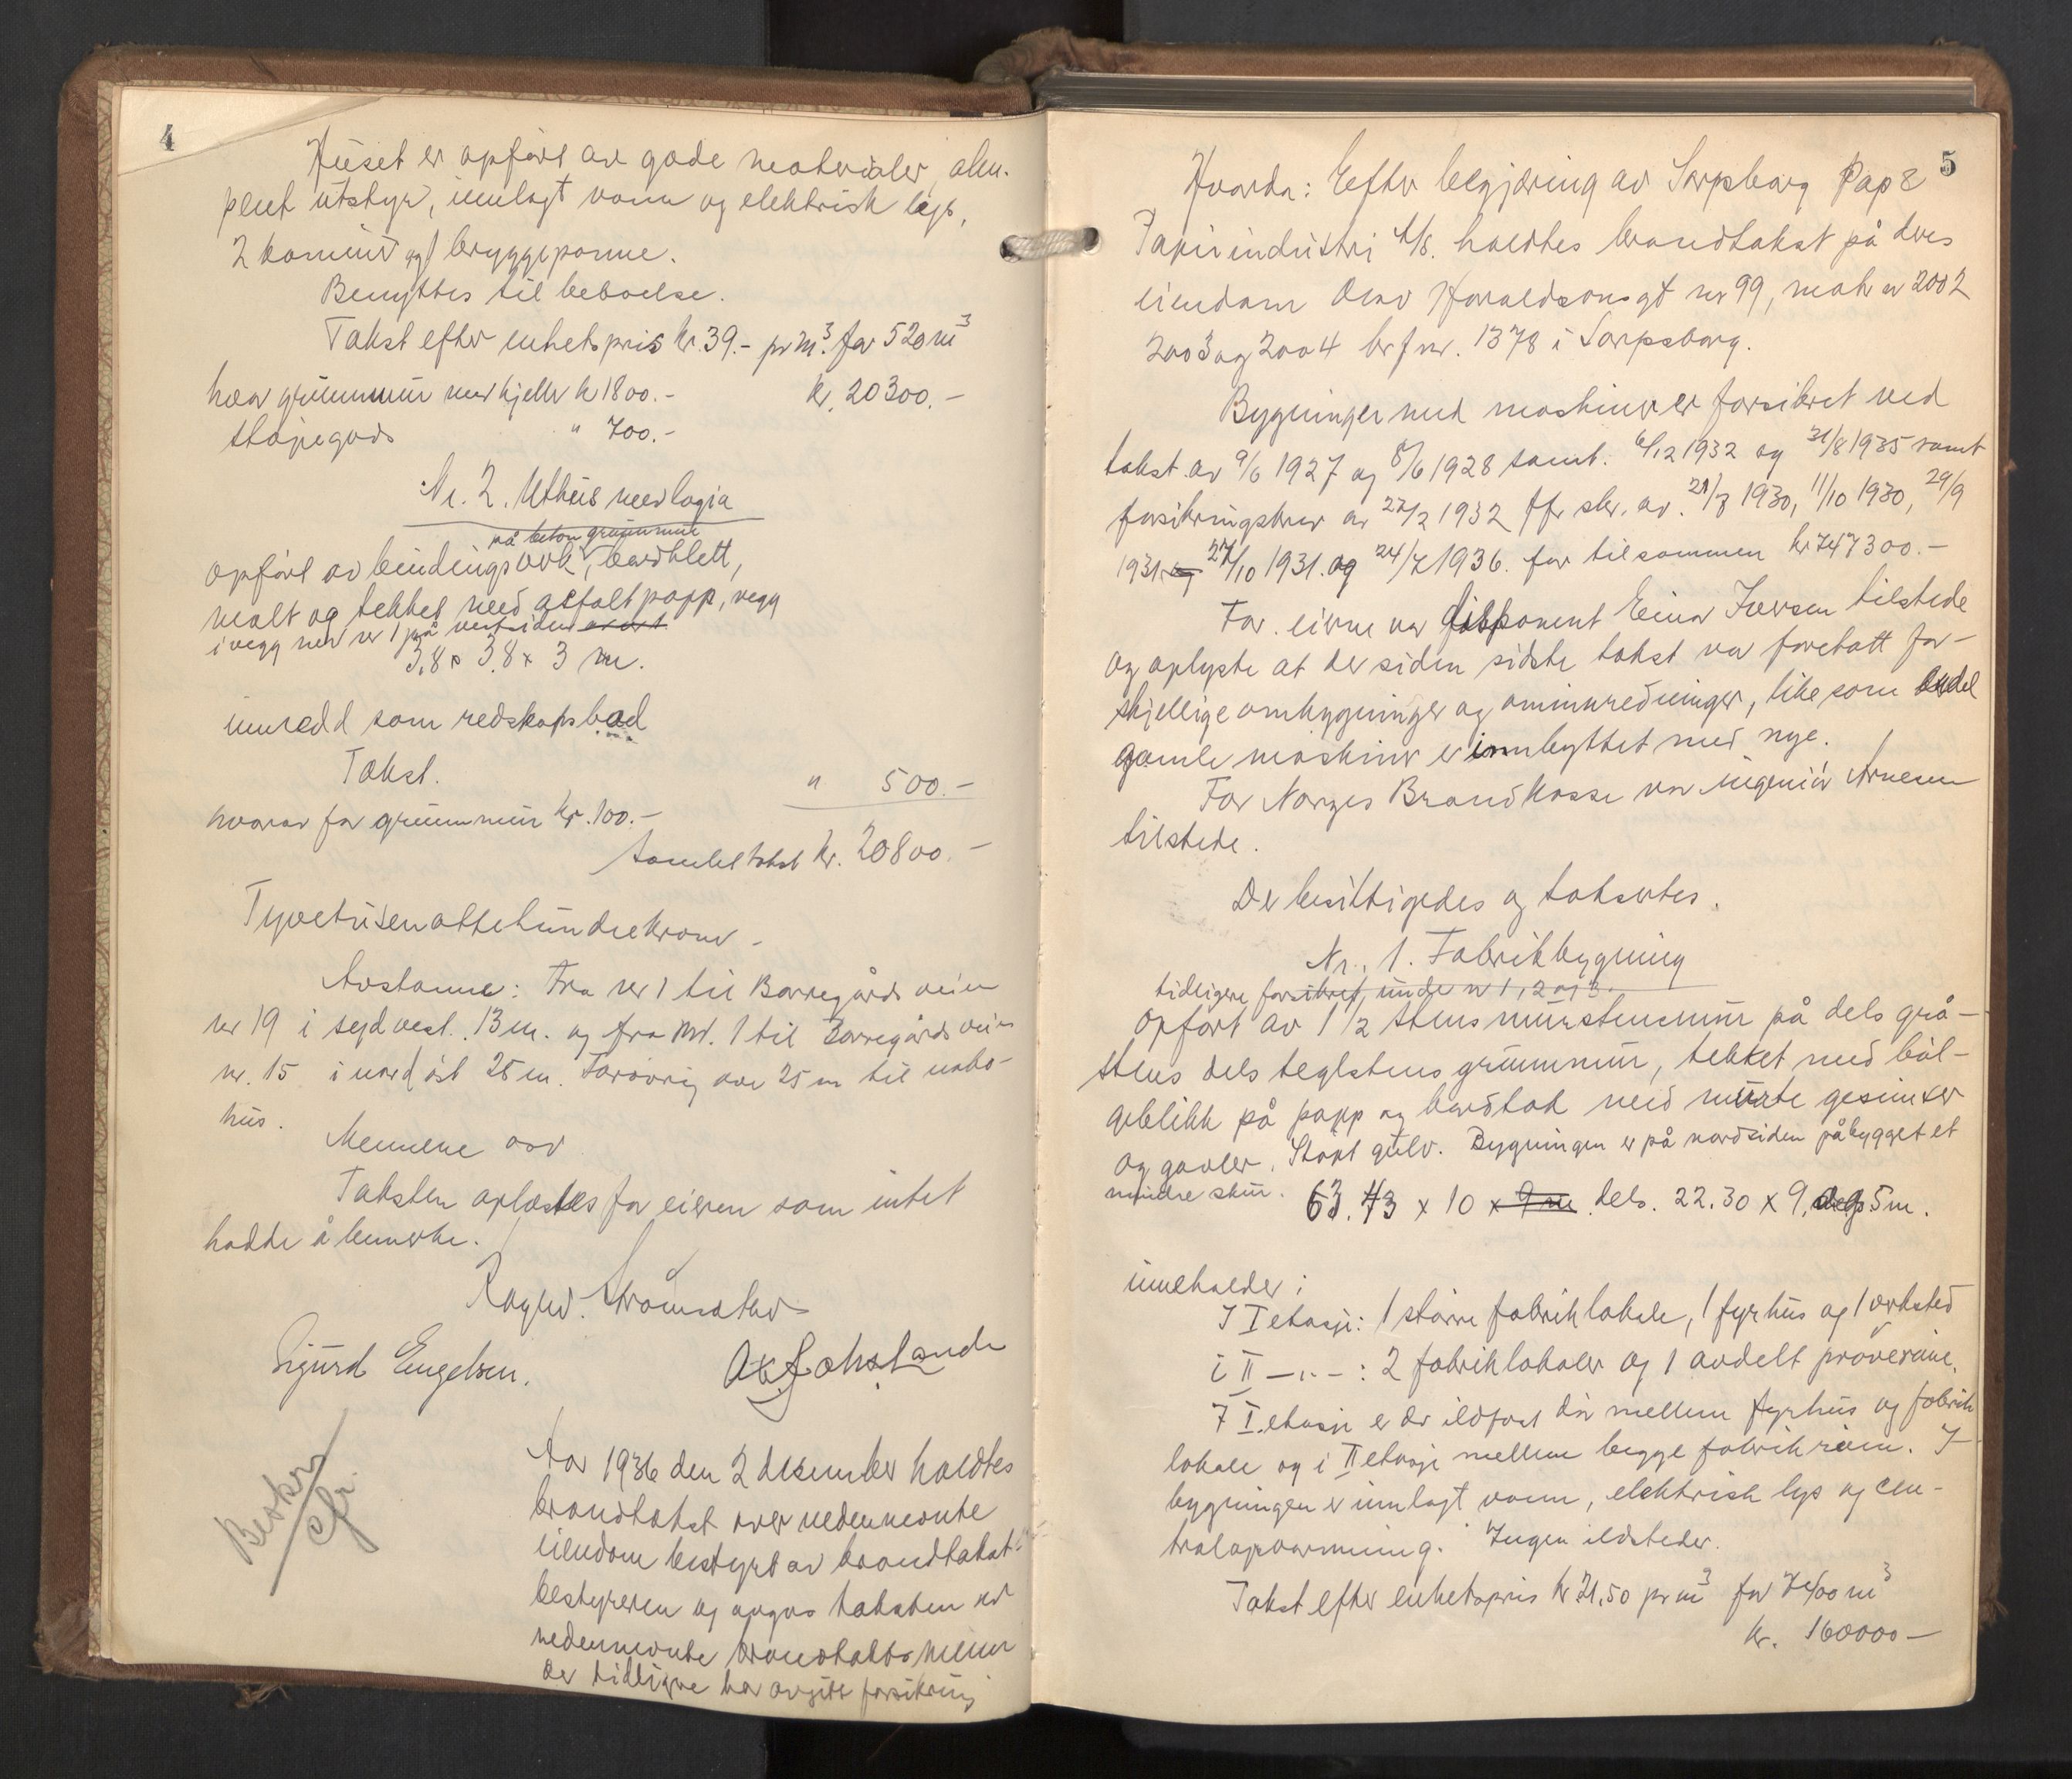 4
Huset er opført av gode materialer, alm.
pent utstyr, innlagt vann og elektrisk lys,
2 kaminer og 1 bryggepanne.
Benyttes til beboelse.
Takst efter enhetspris kr. 39.- pr m³. for 520 m³
hvor grunnmur med kjeller kr 1800.- kr. 20300.-
støpegods " 700.-
Nr. 2. Uthus med logia
på beton grunnmur
opført av bindingsverk, bordklett,
malt og tekket med asfaltpapp, vegg
i vegg med nr 1 på vestsiden
3,8 x 3,8 x 3 m.
innredd som redskapsbod
Takst. " 500.-
hvorav for grunnmur kr. 100.-
Samlet takst kr. 20800.-
Tyvetusenåttehundrekroner.
Avstanne: Fra nr 1 til Borregårds veien
nr 19 i sydvest. 13 m. og fra nr. 1 til Borregårds veien
nr. 15 i nordøst 25 m. Forøvrig over 25 m til nabo-
hus.
Mennene
Taksten oplæstes for eieren som intet
hadde å bemerke.
Ragnv. Strømsæther
Sigurd Engelsen.
Beskr
cfr.
Aar 1936 den 2 desember holdtes
brandtakst over nedennevnte
eiendom bestyrt av brandtakst-
bestyreren og avgav taksten ved
nedennevnte brandtakstmenn
der tidligere har avgitt forsikring
5
Hvorda: Efter begjæring av Sarpsborg Papp &
Papirindustri A/S. holdtes brandtakst på dens
eiendom Olav Haraldsonsgt nr 99, matr nr 2002
2003 og 2004 br f nr. 1378 i Sarpsborg.
Bygninger med maskiner er forsikret ved
takst av 9/6 1927 og 8/6 1928 samt. 6/12 1932 og 31/8 1935 samt
forsikringsbrev av 22/2 1932 ffr skr. av. 21/8 1930, 11/10 1930, 29/9
1931. og 27/10 1931. og 24/7 1936. for tilsammen kr 747300.-
For eierne var disponent Einar Iversen tilstede
og oplyste at der siden sidste takst var foretatt for-
skjellige ombygninger og ominnredninger, like som endel
gamle maskiner er innbyttet med nye.
For Norges Brandkasse var ingeniør Arnesen
tilstede.
De besiktigedes og taksertes.
Nr. 1. Fabrikbygning
tidligere forsikret under nr 1, 2 og 3.
Opført av 1 1/2 stens murstensmur på dels grå-
stens dels teglstens grunnmur, tekket med bøl-
geblikk på papp og bordtak med murte gesimser
og gavler. Støpt gulv. Bygningen er på nordsiden påbygget et
mindre skur. 63.43 x 10 x 9 m dels. 22.30 x 9, 5 m.
inneholder:
I I etasje: 1 større fabriklokale, 1 fyrhus og 1 verksted
i II —"— : 2 fabriklokaler og 1 avdelt prøverum.
I I. etasje er der ildfast dør mellem fyrhus og fabrik
lokale og i II etasje mellem begge fabrikrum. I
bygningen er innlagt vann, elektrisk lys og cen-
tralopvarming. Ingen ildsteder.
Takst efter enhetspris kr 21,50 pr m³ for 7400 m³
kr. 160000-